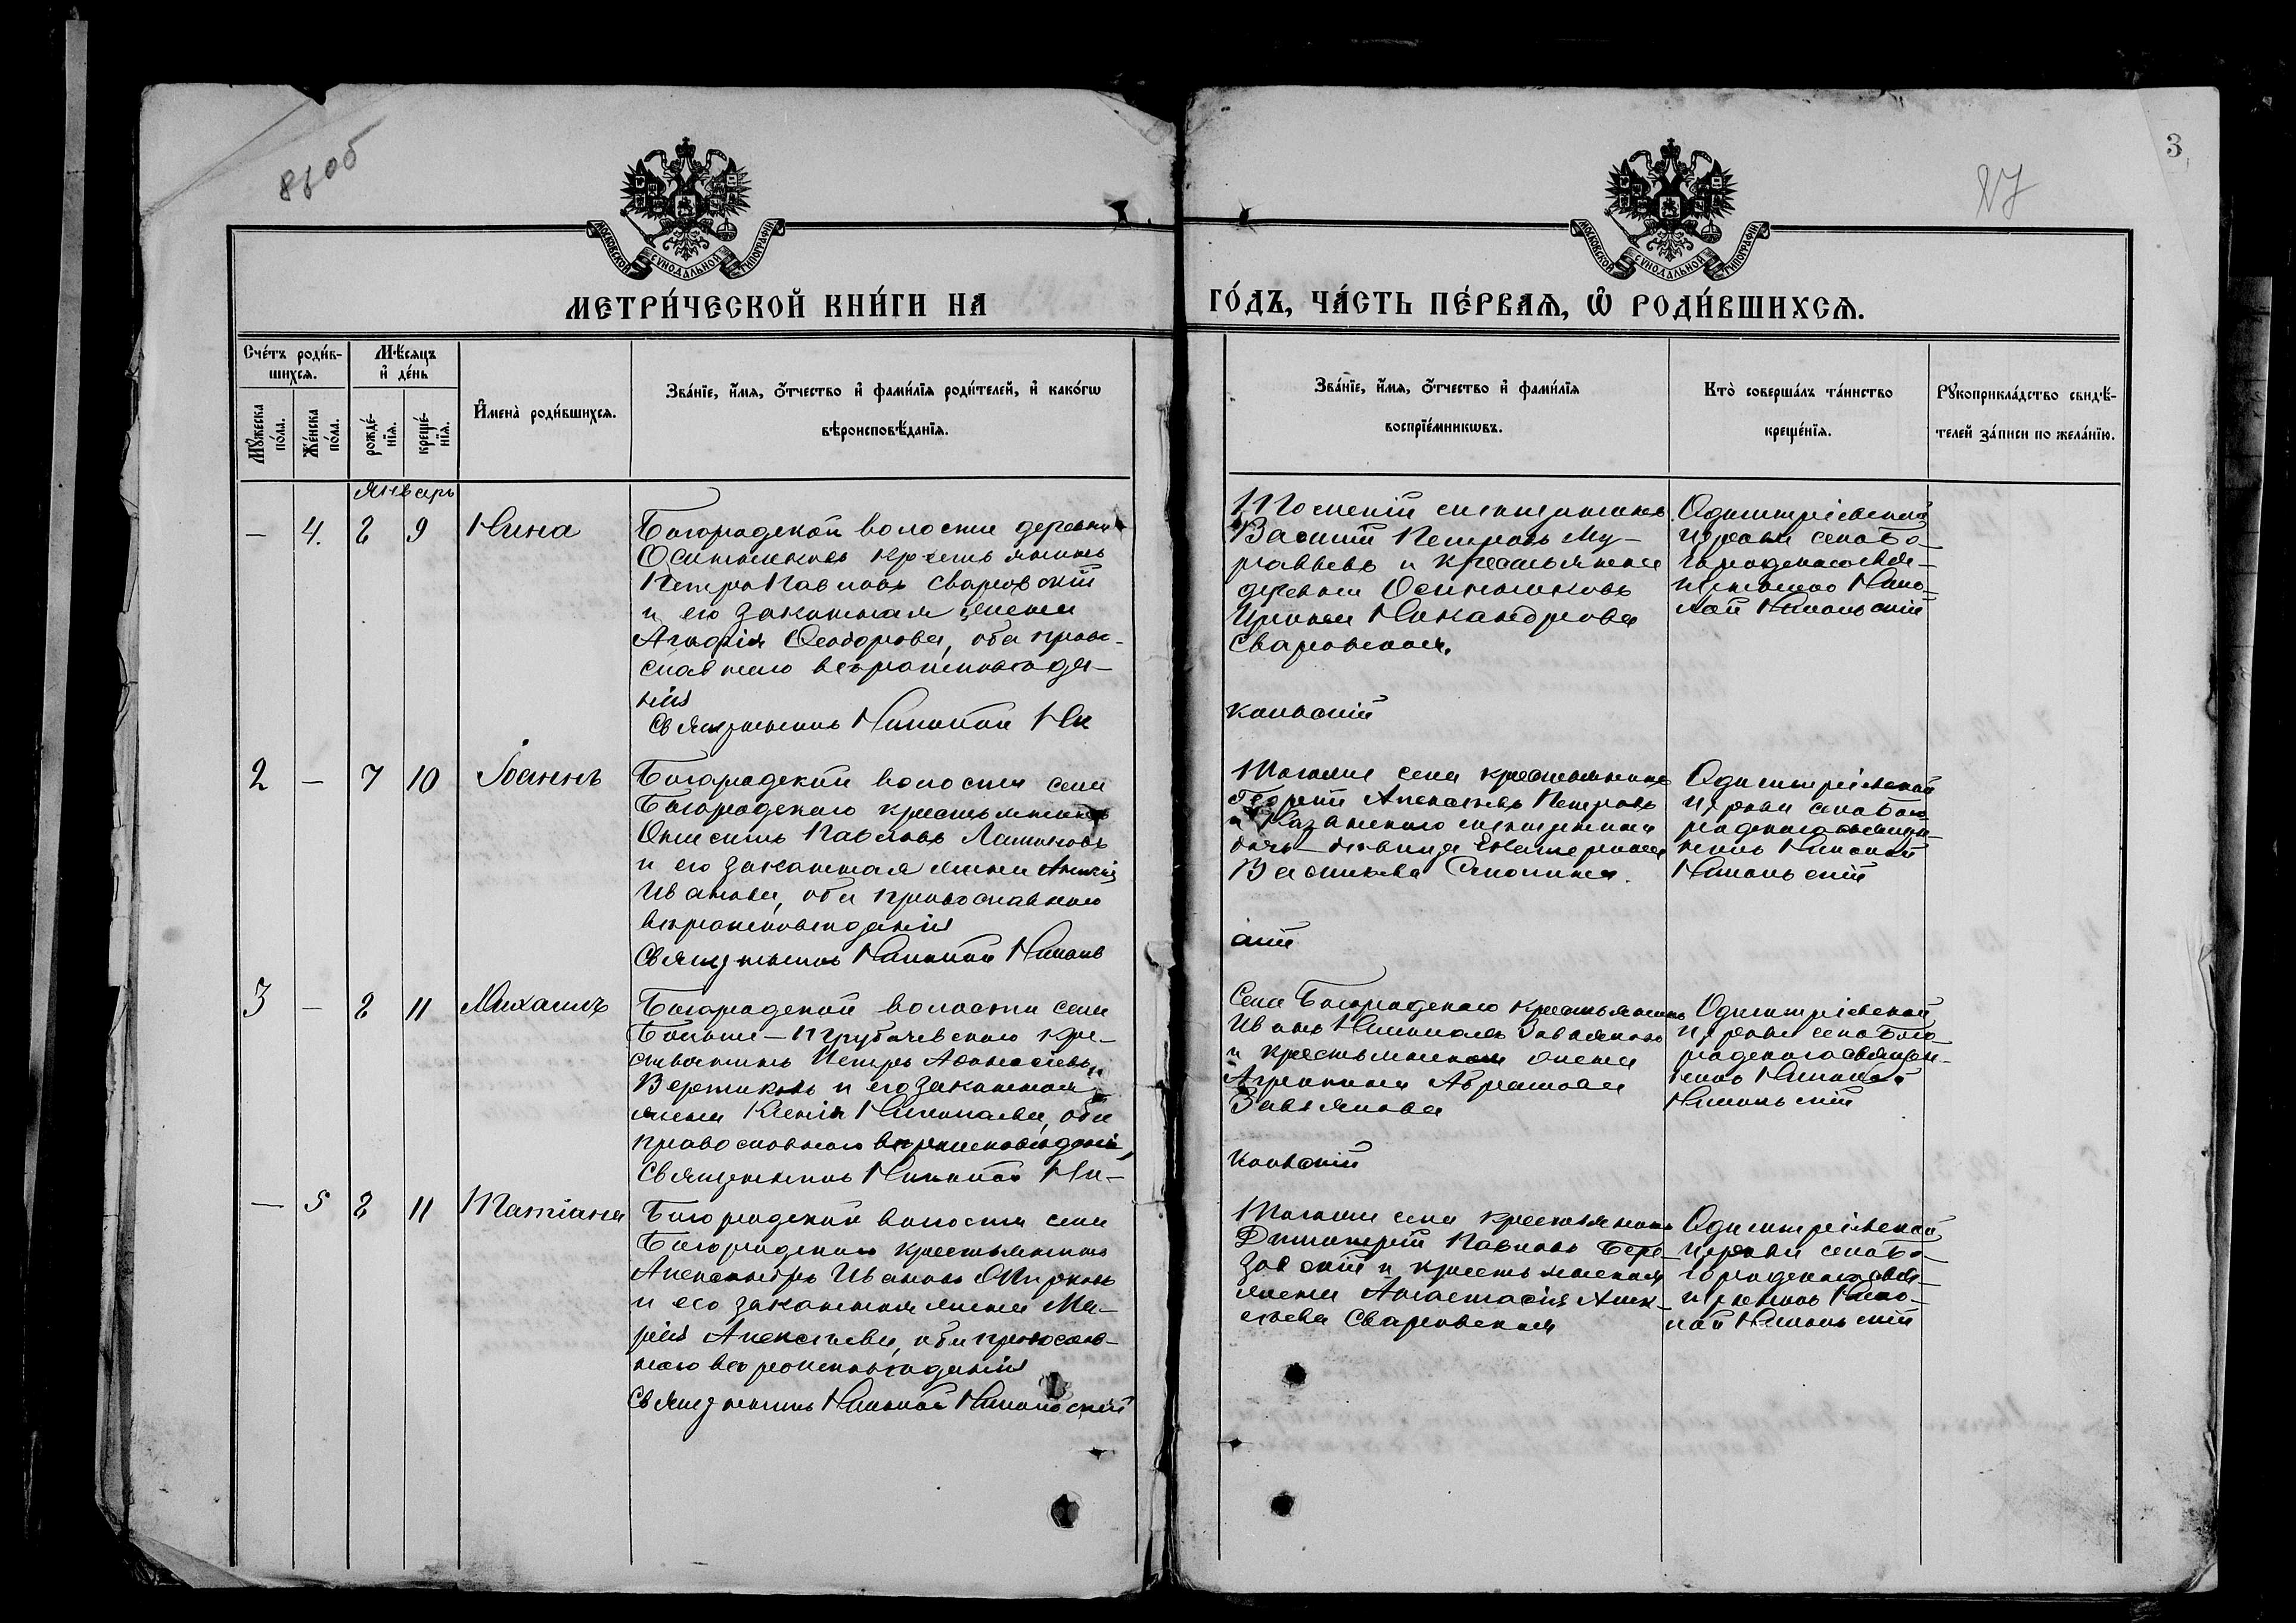 3
МОСКОВСКОЙ СѴНОДАЛЬНОЙ ТИПОГРАФІИ
МОСКОВСКОЙ СѴНОДАЛЬНОЙ ТИПОГРАФІИ
МЕТРИ́ЧЕСКОЙ КНИ́ГИ НА
ГО́ДЪ, ЧА́СТЬ ПЕ́РВАѦ, Ѽ РОДИ́ВШИХСѦ.
Сче́тъ роди́в-
шихсѧ.
Мꙋжеска
по́ла.
Же́нска
по́ла.
Мѣ́сѧцъ
и҆ де́нь
рожде́-
нїѧ.
креще́-
нїѧ.
И҆мена̀ роди́вшихсѧ.
Зва́нїе, и҆́мѧ, ѻ҆́тчество и҆ фами́лїѧ роди́телей, и҆ како́гѡ
вѣроисповѣ́данїѧ.
Зва́нїе, и҆́мѧ, ѻ҆́тчество и҆ фами́лїѧ
воспрїе́мникѡвъ.
Кто̀ соверша́лъ та́инство
креще́нїѧ.
Рꙋкоприкла́дство свидѣ́-
телей за́писи по жела́нїю.
Январь
— 4. 8 9 Нина
Богородской волости деревни
Осиновиковъ крестьянинъ
Петръ Павловъ Сваровскій
и его законная жена
Федорова, оба право-
славнаго вѣроисповѣда-
нія
Священникъ Николай Ни
Василій Петровъ Му-
равьевъ и крестьянка
деревни
Никандрова
Сваровская.
кольскій
Одигитріевской
церкви села Бо-
городскаго свя-
щенникъ Нико-
лай Никольскій
2 — 7 10 Іоаннъ
Богородской волости села
Богородскаго крестьянинъ
Онисимъ Павловъ
и его законная жена
Иванова, оба православнаго
вѣроисповѣданія
Священникъ Николай Никольв
Тогоже села крестьянинъ
Георгій Алексѣевъ Петровъ
и Казанскаго
дочь дѣвица Екатерина
Васильева
скій
Одигитріевской
церкви села Бого
родскаго священ-
никъ Николай
Никольскій
3 — 8 11 Михаилъ
Богородской волости села
Больше-Трубачевскаго кре-
стьянинъ Петръ Аѳанасіевъ
и его законная
жена Ксенія Николаева, оба
православнаго вѣроисповѣданія,
Священникъ Николай Ни-
Села Богородскаго крестьянинъ
Иванъ Николаевъ Завьяловъ
и крестьянская жена
Агрипина Абрамова
Завьялова
кольскій
Одигитріевской
церкви села Бого
родскаго священ-
никъ Николай
Никольскій
— 5 8 11 Татіана
Богородской волости села
Богородскаго крестьянинъ
Александръ Ивановъ
и его законная жена Ма-
рія Алексѣева, оба православ-
наго вѣроисповѣданія
Священникъ Николай Никольскій
Тогоже села крестьянинъ
Димитрій Павловъ Бере-
зовскій и крестьянская
жена Анастасія Алек-
сѣева Сваровская
Одигитріевской
церкви села Бо-
городскаго свя-
щенникъ Нико-
лай Никольскій